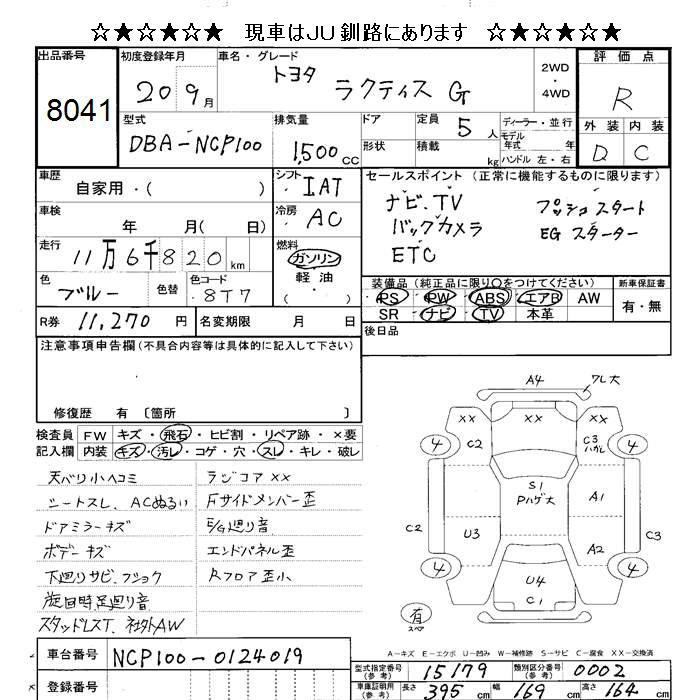 ☆★☆★☆★ 現車はJU釧路にあります ☆★☆★☆★
出品番号
8041
初度登録年月
20 9月
車名・グレード
トヨタ ラクティス G
2WD
・
4WD
評価点
R
外装 内装
D C
型式
DBA-NCP100
排気量
1,500cc
ドア
定員
5人
形状
積載
kg
ディーラー・並行
モデル年式 年
ハンドル 左・右
車歴
自家用・( )
シフト
・IAT
車検
年 月( 日)
冷房
・AC
走行
11万6千820km
燃料
ガソリン
軽油
・( )
色
ブルー
色替
色コード
・8T7
R券 11,270円
名変期限 月 日
セールスポイント(正常に機能するものに限ります)
ナビ.TV プッシュスタート
バックカメラ EGスターター
ETC
装備品(純正品に限り○をつけてください)
PS PW ABS エアB AW
SR ナビ TV 本革
新車保証書
有・無
後日品
注意事項申告欄(不具合内容等は具体的に記入して下さい)
修復歴 有 〔箇所 〕
検査員記入欄
FW キズ・飛石・ヒビ割・リペア跡・×要
内装 キズ・汚レ・コゲ・穴・スレ・キレ・破レ
天バリ小ヘコミ
シートスレ、ACぬるい
ドアミラーキズ
ボデーキズ
下廻りサビ、フショク
旋回時足廻り音
スタッドレスT、社外AW
ラジコアXX
Fサイドメンバー歪
E/G廻り音
エンドパネル歪
Rフロア歪小
A4 ワレ大
XX XX
4 C2 C3 ハガレ 4
S1
Pハゲ大
A1
C2 U3 A2 C3
4 U4 4
C1
有
スペア
A-キズ E-エクボ U-凹み W-補修跡 S-サビ C-腐食 XX-交換済
車台番号 NCP100-0124019
登録番号
型式指定番号(参考) 15179
類別区分番号(参考) 0002
車庫証明用(参考) 長さ 395cm 幅 169cm 高さ 164cm